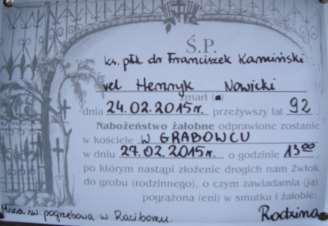 Ś.P.
ks. płk dr Franciszek Kamiński
vel Henryk Nowicki
zmarł (a)
dnia 24.02.2015r. przeżywszy lat 92
Nabożeństwo żałobne odprawione zostanie
w kościele W GRABOWCU
w dniu 27.02.2015r. o godzinie 13⁰⁰
po którym nastąpi złożenie drogich nam Zwłok
do grobu (rodzinnego), o czym zawiadamia (ją)
pogrążona (eni) w smutku i żałobie:
Msza św. pogrzebowa w Raciborzu. Rodzina